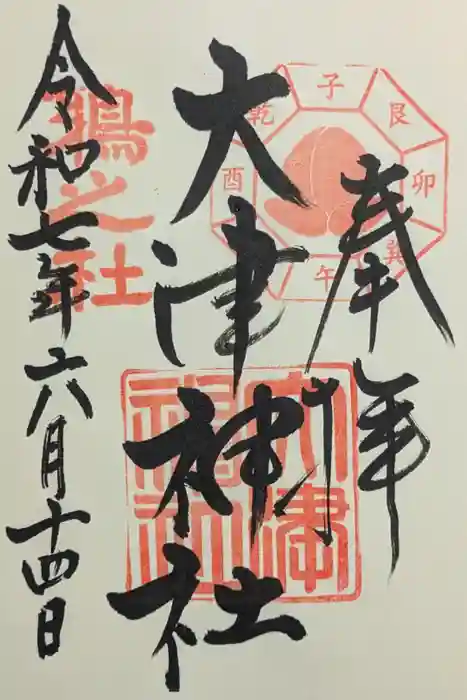 奉拝
子
艮
卯
巽
午
酉
乾
大津神社
大津神社
之社
令和七年六月十四日